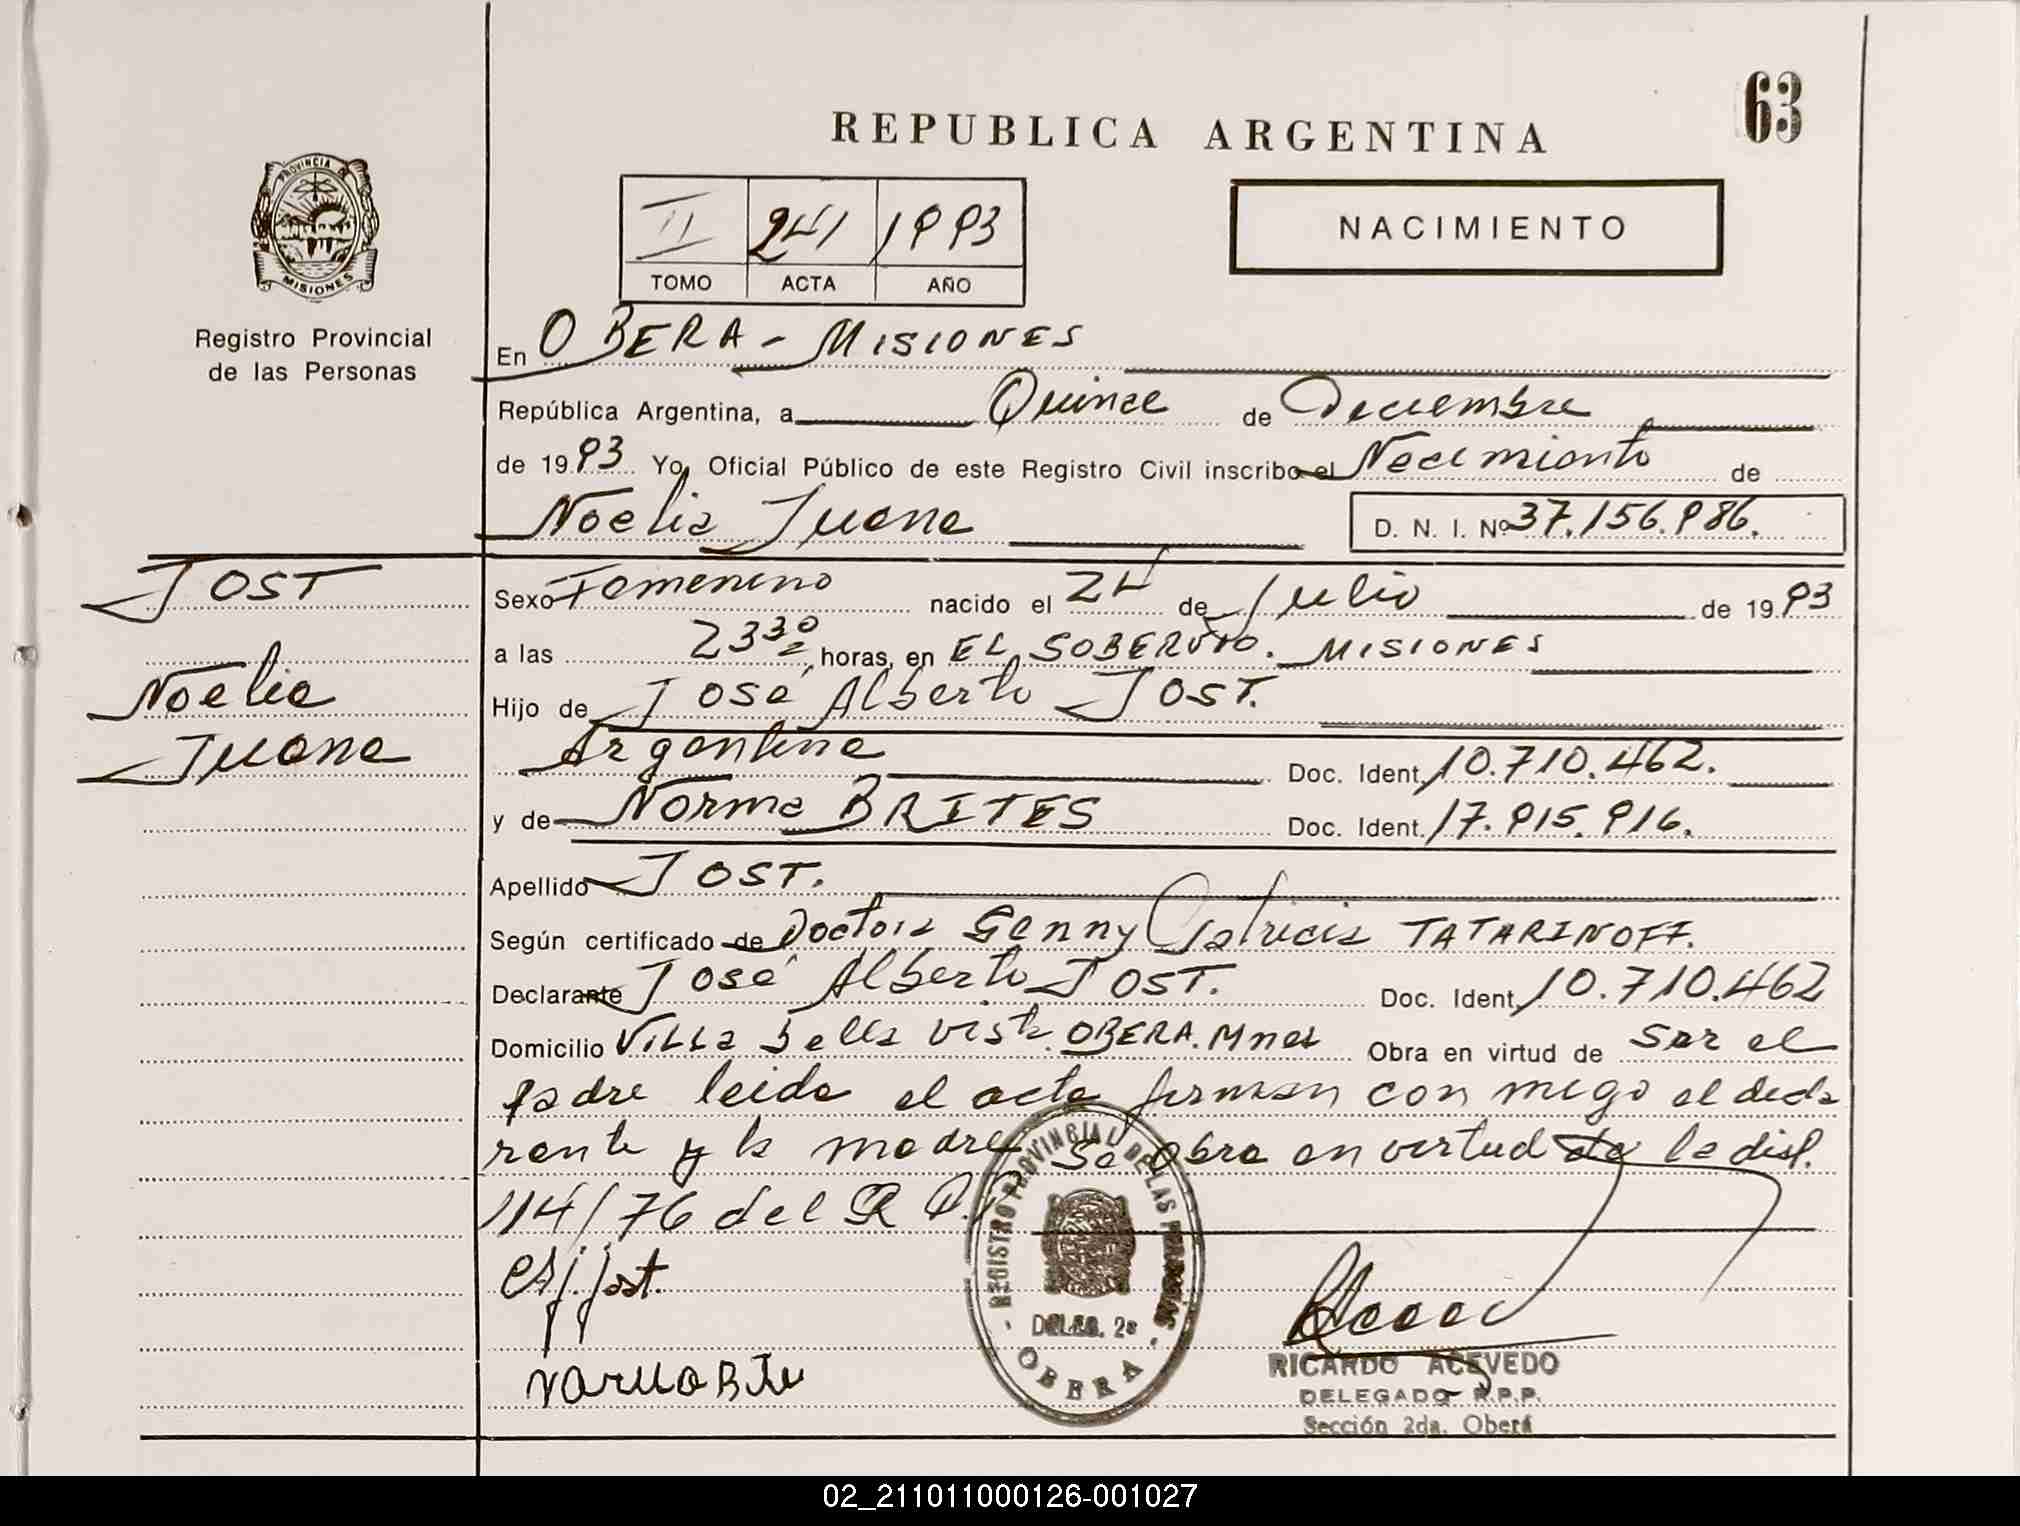 63
REPUBLICA ARGENTINA
PROVINCIA DE
MISIONES
Registro Provincial
de las Personas
II 241 1993
TOMO ACTA AÑO
NACIMIENTO
En OBERA - MISIONES
República Argentina, a Quince de Diciembre
de 1993 Yo, Oficial Público de este Registro Civil inscribo el Nacimiento de
Noelia Juana D. N. I. Nº 37.156.986.
JOST
Noelia
Juana
Sexo Femenino nacido el 24 de Julio de 1993
a las 23 30 horas, en EL SOBERVIO. MISIONES
Hijo de José Alberto JOST.
Argentina Doc. Ident. 10.710.462.
y de Norma BRITES Doc. Ident. 17.915.916.
Apellido JOST.
Según certificado de Doctora Genny Patricia TATARINOFF.
Declarante José Alberto JOST. Doc. Ident. 10.710.462
Domicilio Villa Bella Vista. OBERA. Mnes Obra en virtud de ser el
padre leida el acta firman con migo el decla
rante y la madre se obra en virtud de la disp.
114/76 del R.P.P.
REGISTRO PROVINCIAL DE LAS PERSONAS
DELEG. 2ª
OBERA
RICARDO ACEVEDO
DELEGADO R.P.P.
Sección 2da. Oberá
02_211011000126-001027